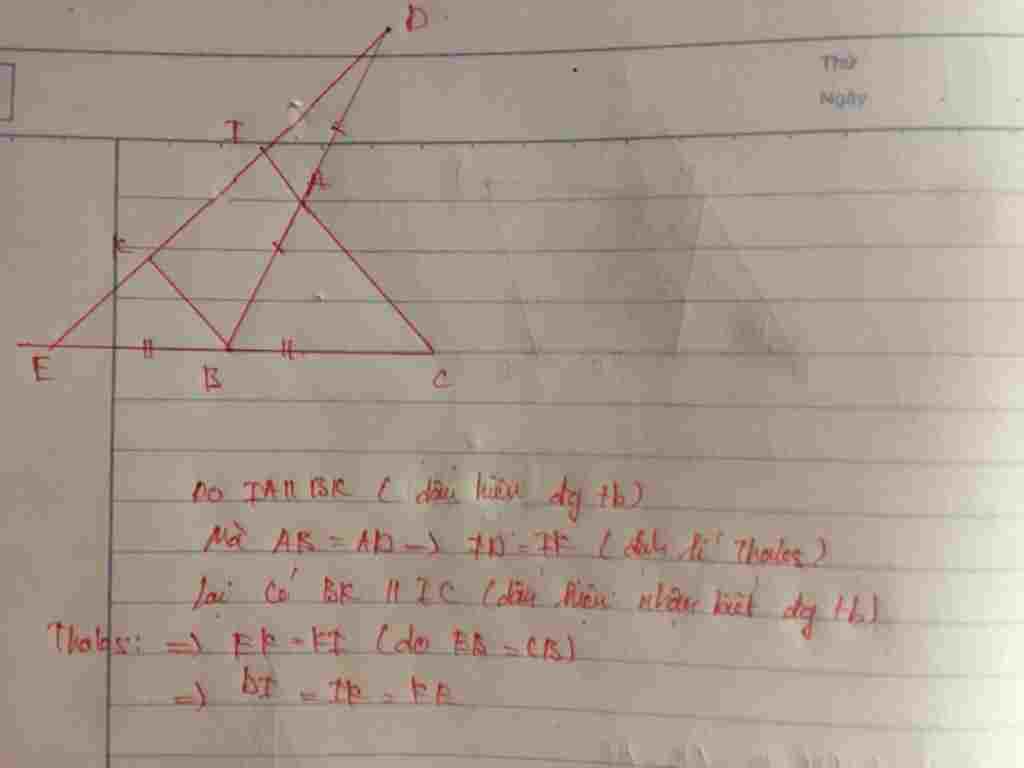 D
Thứ
Ngày
I
A
K
E
B
C
Do IA // BK ( dấu hiệu đg tb)
Mà AB = AD -> ID = IK ( định lí Thales )
Lại Có BK // IC (dấu hiệu nhận biết đg tb)
Thales: => EK = KI (do EB = CB)
=> DI = IK = KE